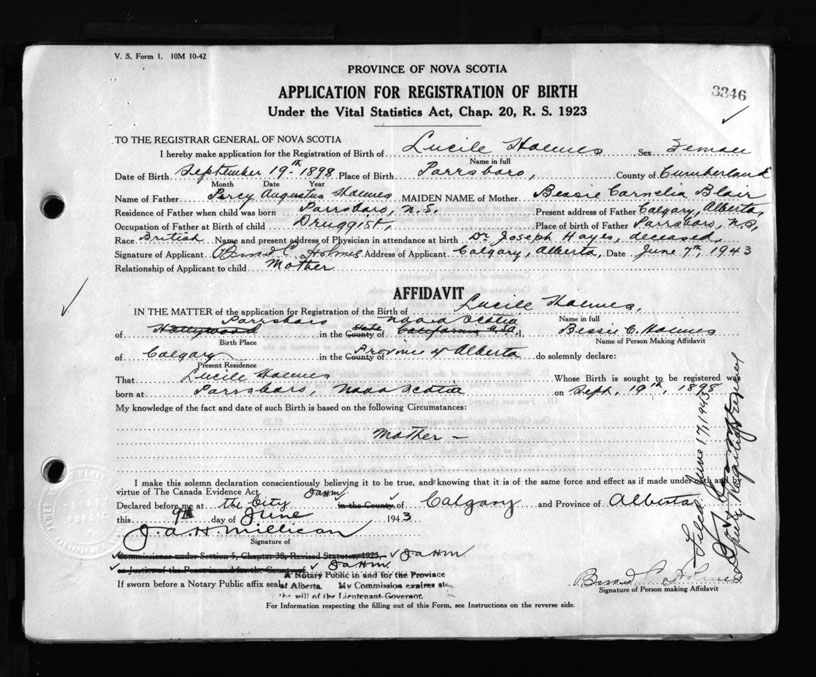 V. S. Form 1. 10M 10-42
PROVINCE OF NOVA SCOTIA
APPLICATION FOR REGISTRATION OF BIRTH
3346
Under the Vital Statistics Act, Chap. 20, R. S. 1923
TO THE REGISTRAR GENERAL OF NOVA SCOTIA
I hereby make application for the Registration of Birth of Lucile Holmes Sex Female
Name in full
Date of Birth September 19th 1898 Place of Birth Parrsboro, County of Cumberland
Month Date Year
Name of Father Percy Augustus Holmes MAIDEN NAME of Mother Bessie Cornelia Blair
Residence of Father when child was born Parrsboro, N.S. Present address of Father Calgary, Alberta,
Occupation of Father at Birth of child Druggist, Place of birth of Father Parrsboro, N.S.
Race British Name and present address of Physician in attendance at birth Dr. Joseph Hayes, deceased,
Signature of Applicant C. Holmes Address of Applicant Calgary, Alberta, Date June 7th, 1943
Relationship of Applicant to child Mother
AFFIDAVIT
IN THE MATTER of the application for Registration of the Birth of Lucile Holmes,
Parrsboro Nova Scotia Name in full
of Hollywood in the State County of California USA. I, Bessie C. Holmes
Birth Place Name of Person Making Affidavit
of Calgary in the County of Province of Alberta do solemnly declare:
Present Residence
That Lucile Holmes Whose Birth is sought to be registered was
born at Parrsboro, Nova Scotia on Sept. 19th, 1898
My knowledge of the fact and date of such Birth is based on the following Circumstances:
Mother -
I make this solemn declaration conscientiously believing it to be true, and knowing that it is of the same force and effect as if made under oath and
virtue of The Canada Evidence Act. JAHM
Declared before me at the City in the County of Calgary and Province of Alberta
this 9th day of June 1943
J. A. H. Millican
Signature of
Commissioner under Section 5, Chapter 38, Revised Statutes, 1923, JAHM
or Justice of the Peace in and for the County of JAHM
A Notary Public in and for the Province
If sworn before a Notary Public affix seal of Alberta. My Commission expires at
the will of the Lieutenant-Governor.
C. Holmes
Signature of Person making Affidavit
For Information respecting the filling out of this Form, see Instructions on the reverse side.
Filed June 17, 1943
Deputy Registrar General